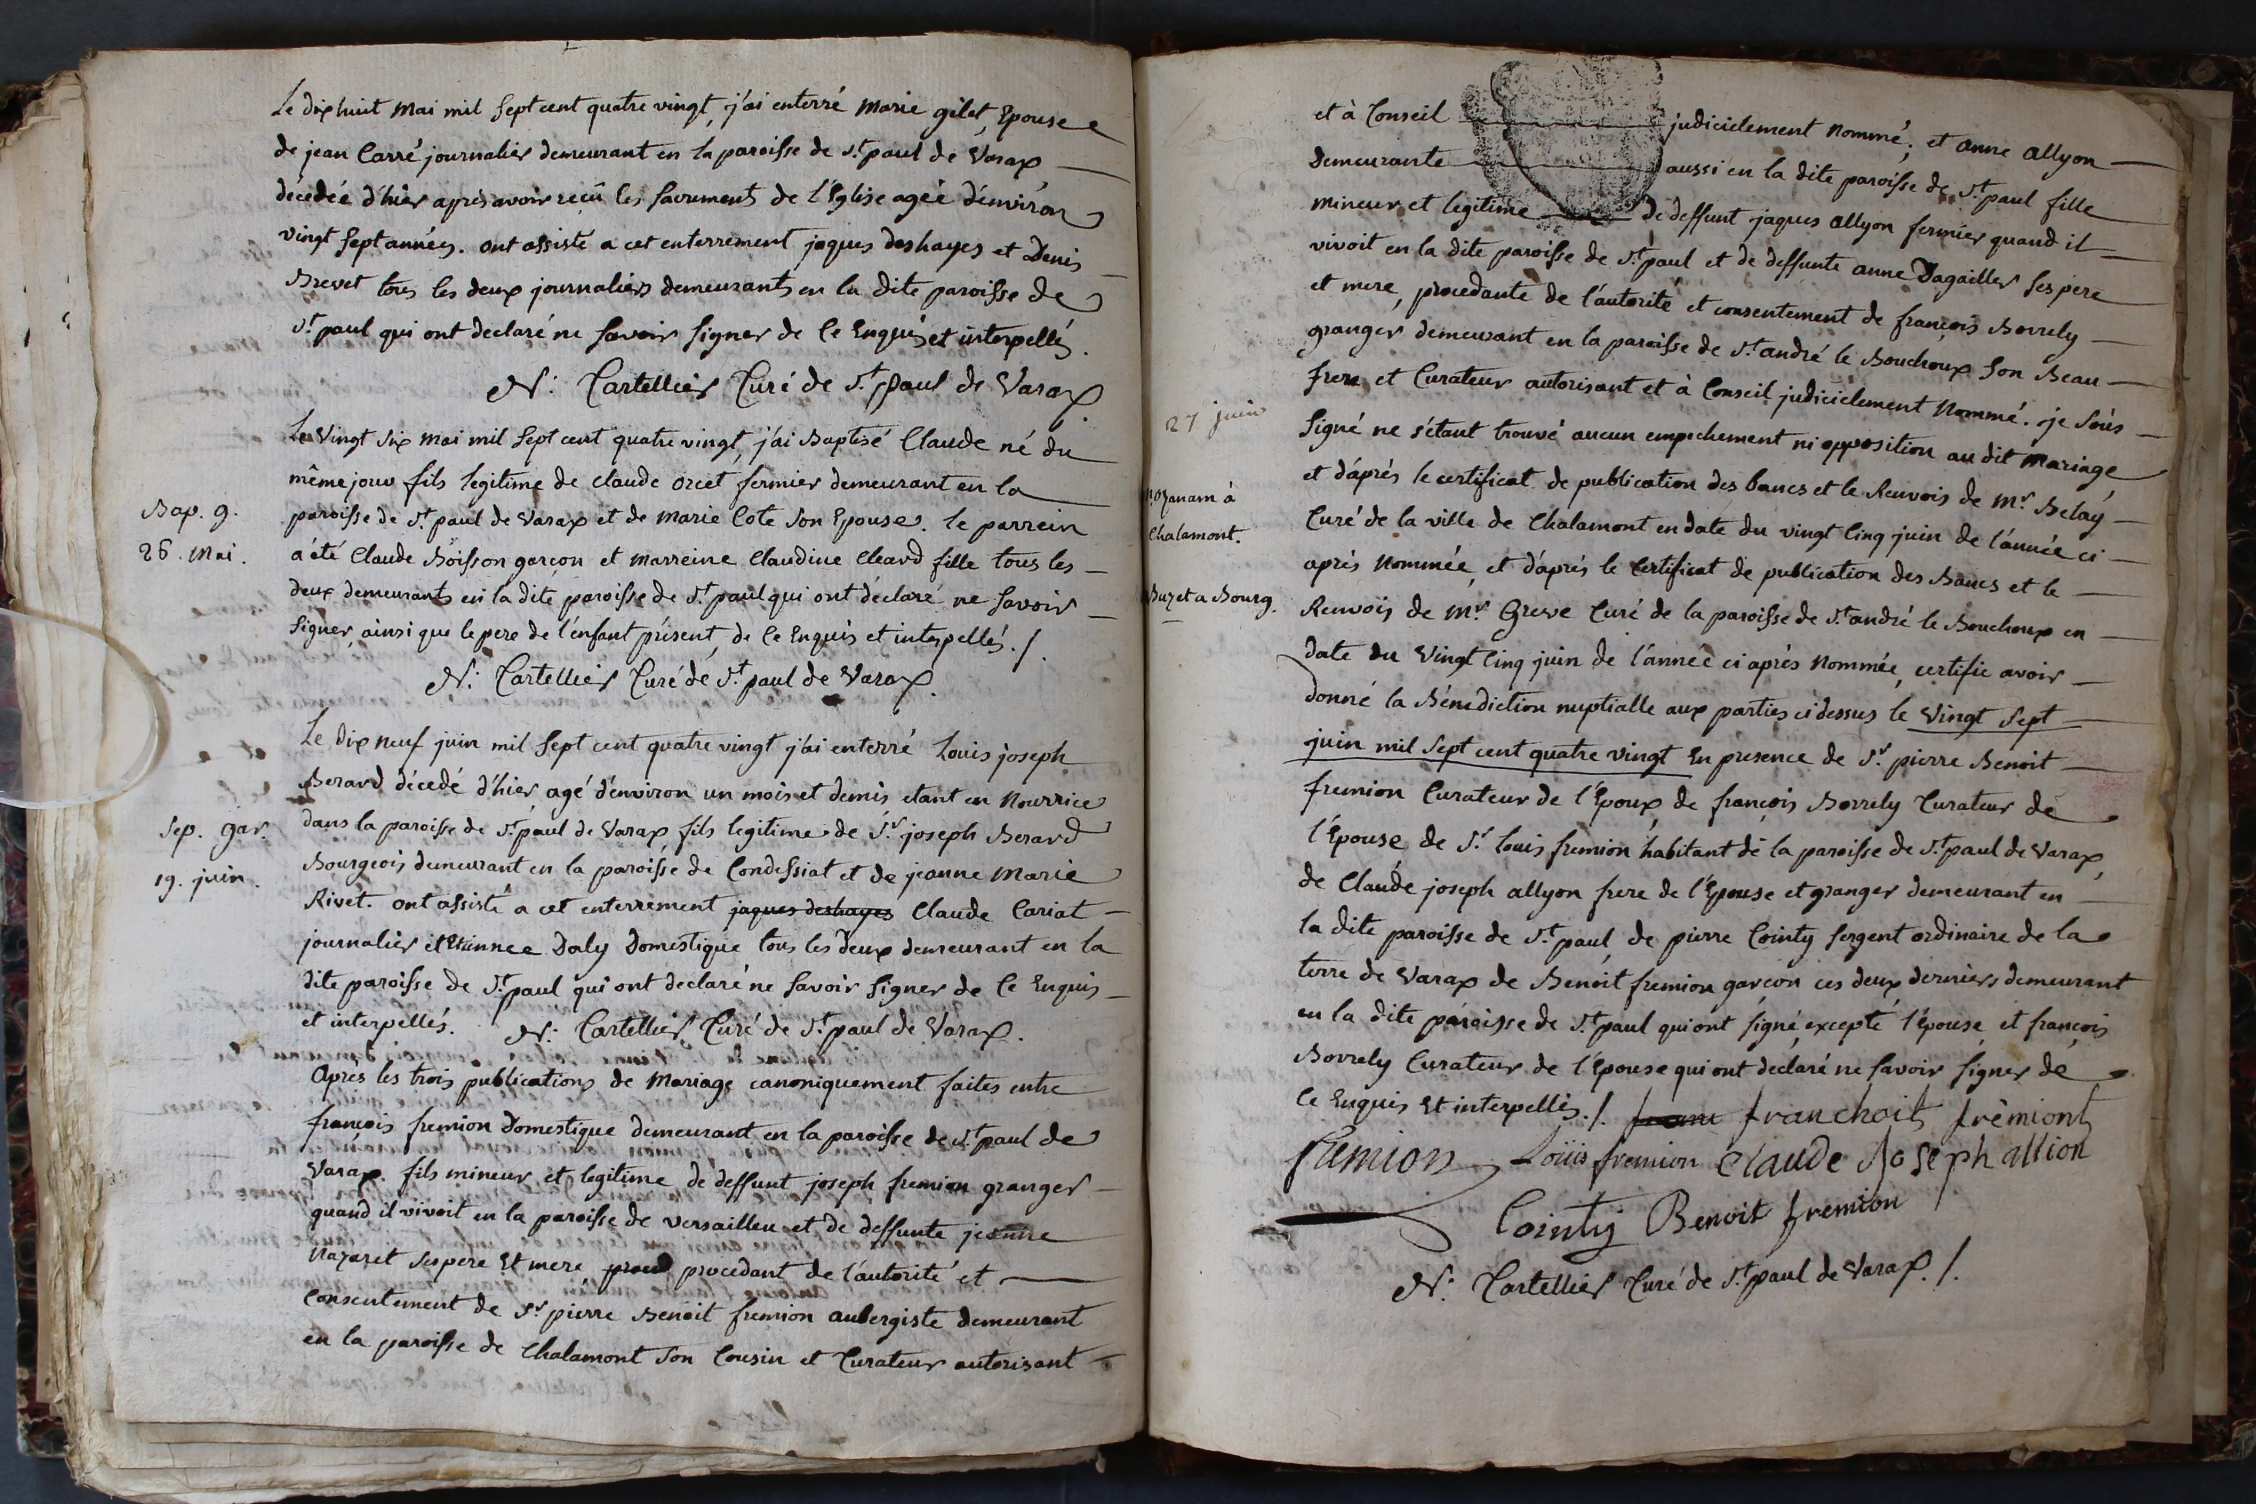 Le dix huit mai mil sept cent quatre vingt, j'ai enterré marie gilet, Epouse
de jean Carré journalier demeurant en la paroisse de St paul de Varax
décedée d'hier aprés avoir reçû les sacrements de l'Eglise agée d'environ
vingt sept années. ont assisté a cet enterrement jaques deshayes et Denis
Brevet tous les deux journaliers demeurants en la dite paroisse de
St paul qui ont declaré ne savoir signer de ce Enquis et interpellés.
N: Cartellier Curé de St paul de Varax
Bap. g.
26. mai.
Le Vingt six mai mil sept cent quatre vingt, j'ai Baptisé Claude né du
même jour fils legitime de claude orcet fermier demeurant en la
paroisse de St paul de Varax et de marie Cote son Epouse. le parrein
a été Claude Boisson garçon et marreine Claudine Cleard fille tous les
deux demeurants en la dite paroisse de St paul qui ont déclaré ne savoir
signer, ainsi que le pere de l'enfant présent, de ce Enquis et interpellés./.
N: Cartellier Curé de St paul de Varax.
Sep. gar.
19. juin.
Le dix neuf juin mil sept cent quatre vingt j'ai enterré Louis joseph
Berard décedé d'hier, agé d'environ un mois et demis etant en Nourrice
dans la paroisse de St paul de Varax fils legitime de Sr joseph Berard
Bourgeois demeurant en la paroisse de Condessiat et de jeanne marie
Rivet. ont assisté a cet enterrement jaques deshayes Claude Cariat
journalier et Etiennee Daly Domestique tous les deux demeurant en la
dite paroisse de St paul qui ont declaré ne savoir signer de ce Enquis
et interpellés. N: Cartellier Curé de St paul de Varax.
Aprés les trois publications de mariage canoniquement faites entre
françois fremion Domestique demeurant en la paroisse de St paul de
Varax. fils mineur et legitime de deffunt joseph fremion granger
quand il vivoit en la paroisse de versailleu et de deffunte jeanne
Nazaret ses pere Et mere proced procedant de l'autorité et
Consentement de Sr pierre Benoit fremion aubergiste demeurant
en la paroisse de Chalamont son Cousin et Curateur autorisant
et à Conseil judicielement nommé; et anne allyon
demeurante aussi en la dite paroisse de St paul fille
mineur et legitime de deffunt jaques allyon fermier quand il
vivoit en la dite paroisse de St paul et de deffunte anne Dagaillers ses pere
et mere, procedante de l'autorité et consentement de françois Borrely
granger demeurant en la paroisse de St andré le Bouchoux son Beau
frere, et Curateur autorisant et à Conseil judicielement nommé. je sous
27 juin
signé ne s'étant trouvé aucun empechement ni opposition au dit mariage
et d'aprés le certificat de publication des bancs et le Renvois de mr Belay
ozanam à
Chalamont.
Curé de la ville de Chalamont en date du vingt Cinq juin de l'année ci
aprés nommée, et d'aprés le certificat de publication des Bancs et le
Buzet a Bourg.
Renvois de mr Greve Curé de la paroisse de St andré le Bouchoux en
date du Vingt Cinq juin de l'année ci aprés nommée, certifie avoir
donné la Bénediction nuptialle aux parties ci dessus le Vingt Sept
juin mil Sept cent quatre vingt En presence de Sr pierre Benoit
fremion Curateur de l'Epoux, de françois Borrely Curateur de
l'Epouse de Sr Louis fremion habitant de la paroisse de St paul de Varax,
de Claude joseph allyon frere de l'Epouse et granger demeurant en
la dite paroisse de St paul, de pierre Cointy sergent ordinaire de la
terre de Varax de Benoit fremion garçon ces deux derniers demeurant
en la dite paroisse de St paul qui ont signé, excepté l'épouse, et françois
Borrely Curateur de l'Epouse qui ont declaré ne savoir signer de
ce Enquis Et interpellés./. franchoit frèmiont
fremion Loüis fremion Claude Joseph allion
Cointy Benoit fremion
N: Cartellier Curé de St paul de Varax./.